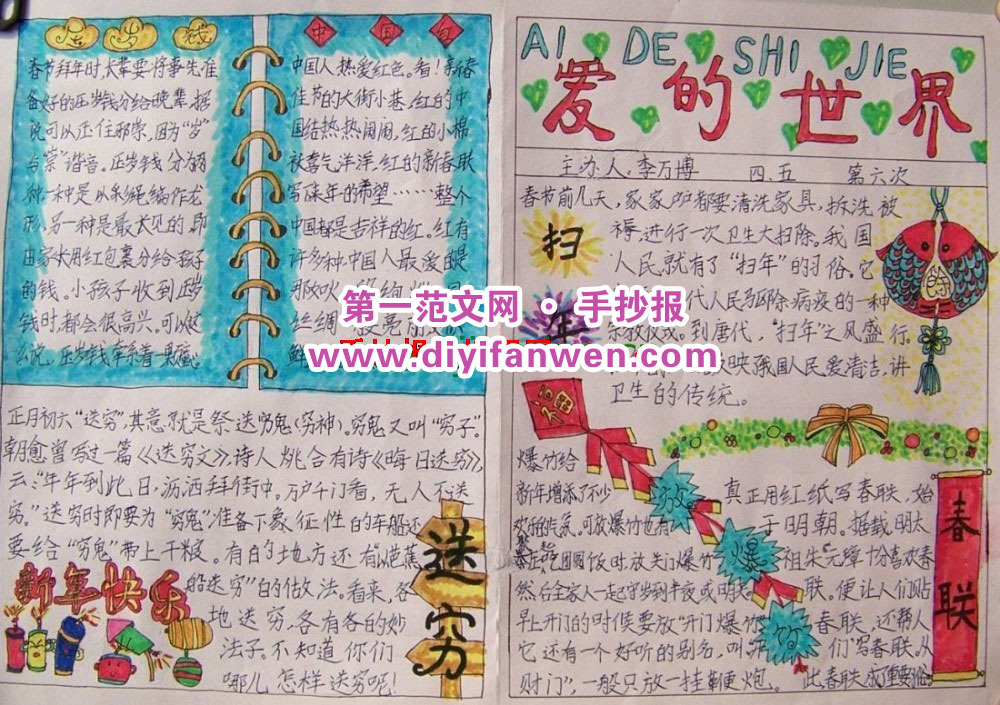 压岁钱
春节拜年时长辈要将事先准
备好的压岁钱分给晚辈,据
说可以压住邪祟,因为"岁"
与"祟"谐音。压岁钱分为两
种一种是以彩绳编作龙
形,另一种是最常见的,即
由家长用红包裹分给孩子
的钱。小孩子收到压岁
钱时,都会很高兴,可以这
么说,压岁钱牵系着
中国红
中国人热爱红色。看!新春
佳节的大街小巷,红的中
国结热热闹闹,红的小棉
袄喜气洋洋,红的新春联
写缀年的希望……整个
中国都是吉祥的红。红有
许多种,中国人最爱的是
丝绸
鲜
正月初六"送穷",其意就是祭送穷鬼(穷神)。穷鬼又叫"穷子"。
朝愈曾写过一篇《送穷文》,诗人姚合有诗《晦日送穷》,
云:"年年到此日,沥洒拜街中。万户千门看,无人不送
穷。"送穷时即要为"穷鬼"准备下象征性的车船还
要给"穷鬼"带上干粮。有的地方还有"芭蕉
船送穷"的做法。看来,各
地送穷,各有各的妙
法子。不知道你们
哪儿怎样送穷呢!
送穷
新年快乐
AI DE SHI JIE
爱的世界
主办人:李万博 四.五 第六次
扫年
春节前几天,家家户都要清洗家具,拆洗被
褥,进行一次卫生大扫除。我国
人民就有了"扫年"的习俗。它
代人民驱除病疫的一种
宗教仪式。到唐代,"扫年"之风盛行,
映我国人民爱清洁,讲
卫生的传统。
福
放爆竹
爆竹给
新年增添了不少
欢闹的气氛。可放爆竹也有
吃团圆饭时,放关门爆竹
然后全家人一起守岁到半夜或明天
早上开门的时候要放"开门爆竹
它还有一个好听的别名,叫"开
财门",一般只放一挂鞭炮。
春联
真正用红纸写春联,始
于明朝。据载明太
祖朱元璋十分喜欢春
联。便让人们贴
春联,还帮人
们写春联,从
此,春联成了重要俗
第一范文网 · 手抄报
www.diyifanwen.com